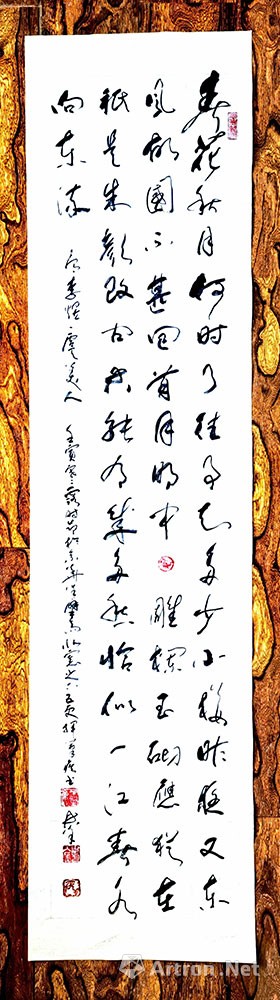 春花秋月何时了往事知多少小楼昨夜又东
风故國不堪回首月明中雕栏玉砌應犹在
祇是朱颜改问君能有几多愁恰似一江春水
向东流 李煜虞美人 壬寅寒露时节
Artron.Net